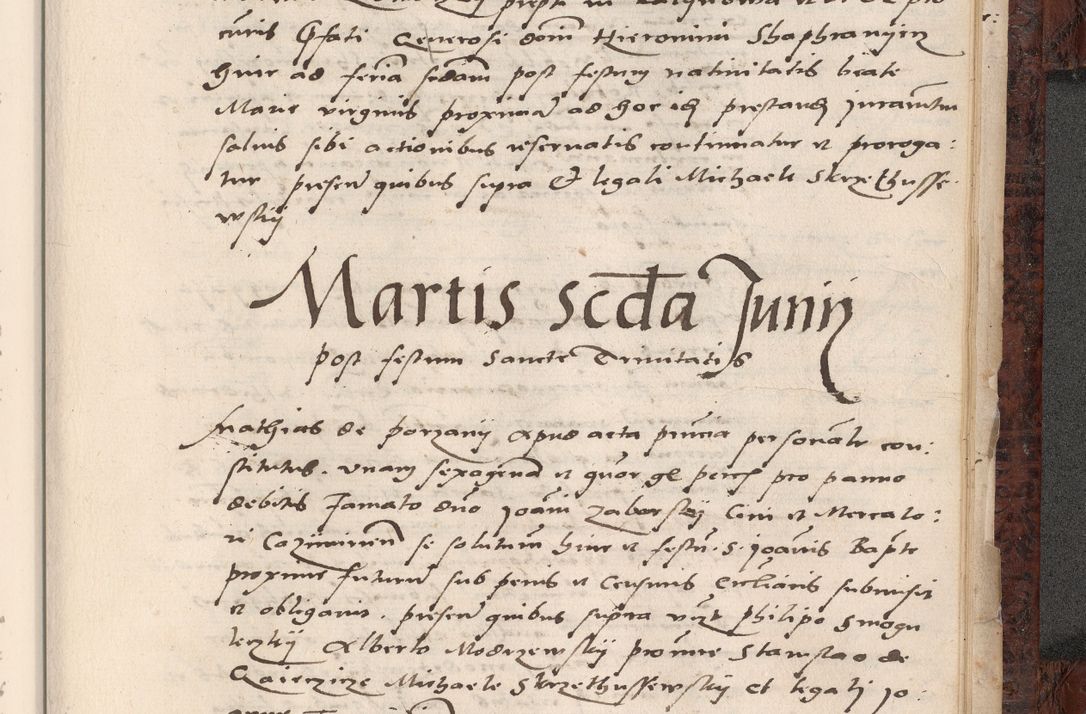 curiis Gsati Generosi domi Hieronimi Shaphranyecz
hinc ad feria sedam post festum nativitatis beate
Marie virginis proxima ad hoc idem prestandum iuramentum
salvis sibi actionibus reservatis continuatur et proroga:
tur presentibus quibus supra Et legali Michaele Skrzethusse
wskij
Martis scda Junij
post festum Sancte Trinitatis
Mathias de porzany apud acta pncia personalr con:
stitutus. unam sexagena et quor gl pro panno
debitas Famato dno Joani Zaborskij Civi et Mercato:
ri Cazimirien se soluturum hinc et festu S. Joanis Bapte
proxime futurum sub penis et Censuris Ecclesiasticis submisit
et obligavit. presentibus quibus supra Philipo Smogu
leczkij Alberto Modrzewskij Stanislao de
Michaele Skrzethussewskij et legali Jo: